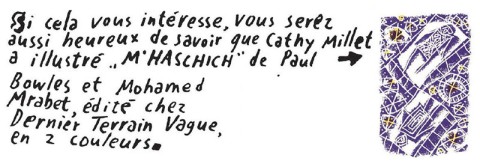 Si cela vous intéresse, vous serez
aussi heureux de savoir que Cathy Millet
a illustré „M'HASCHICH" de Paul →
Bowles et Mohamed
Mrabet, édité chez
Dernier Terrain Vague,
en 2 couleurs.